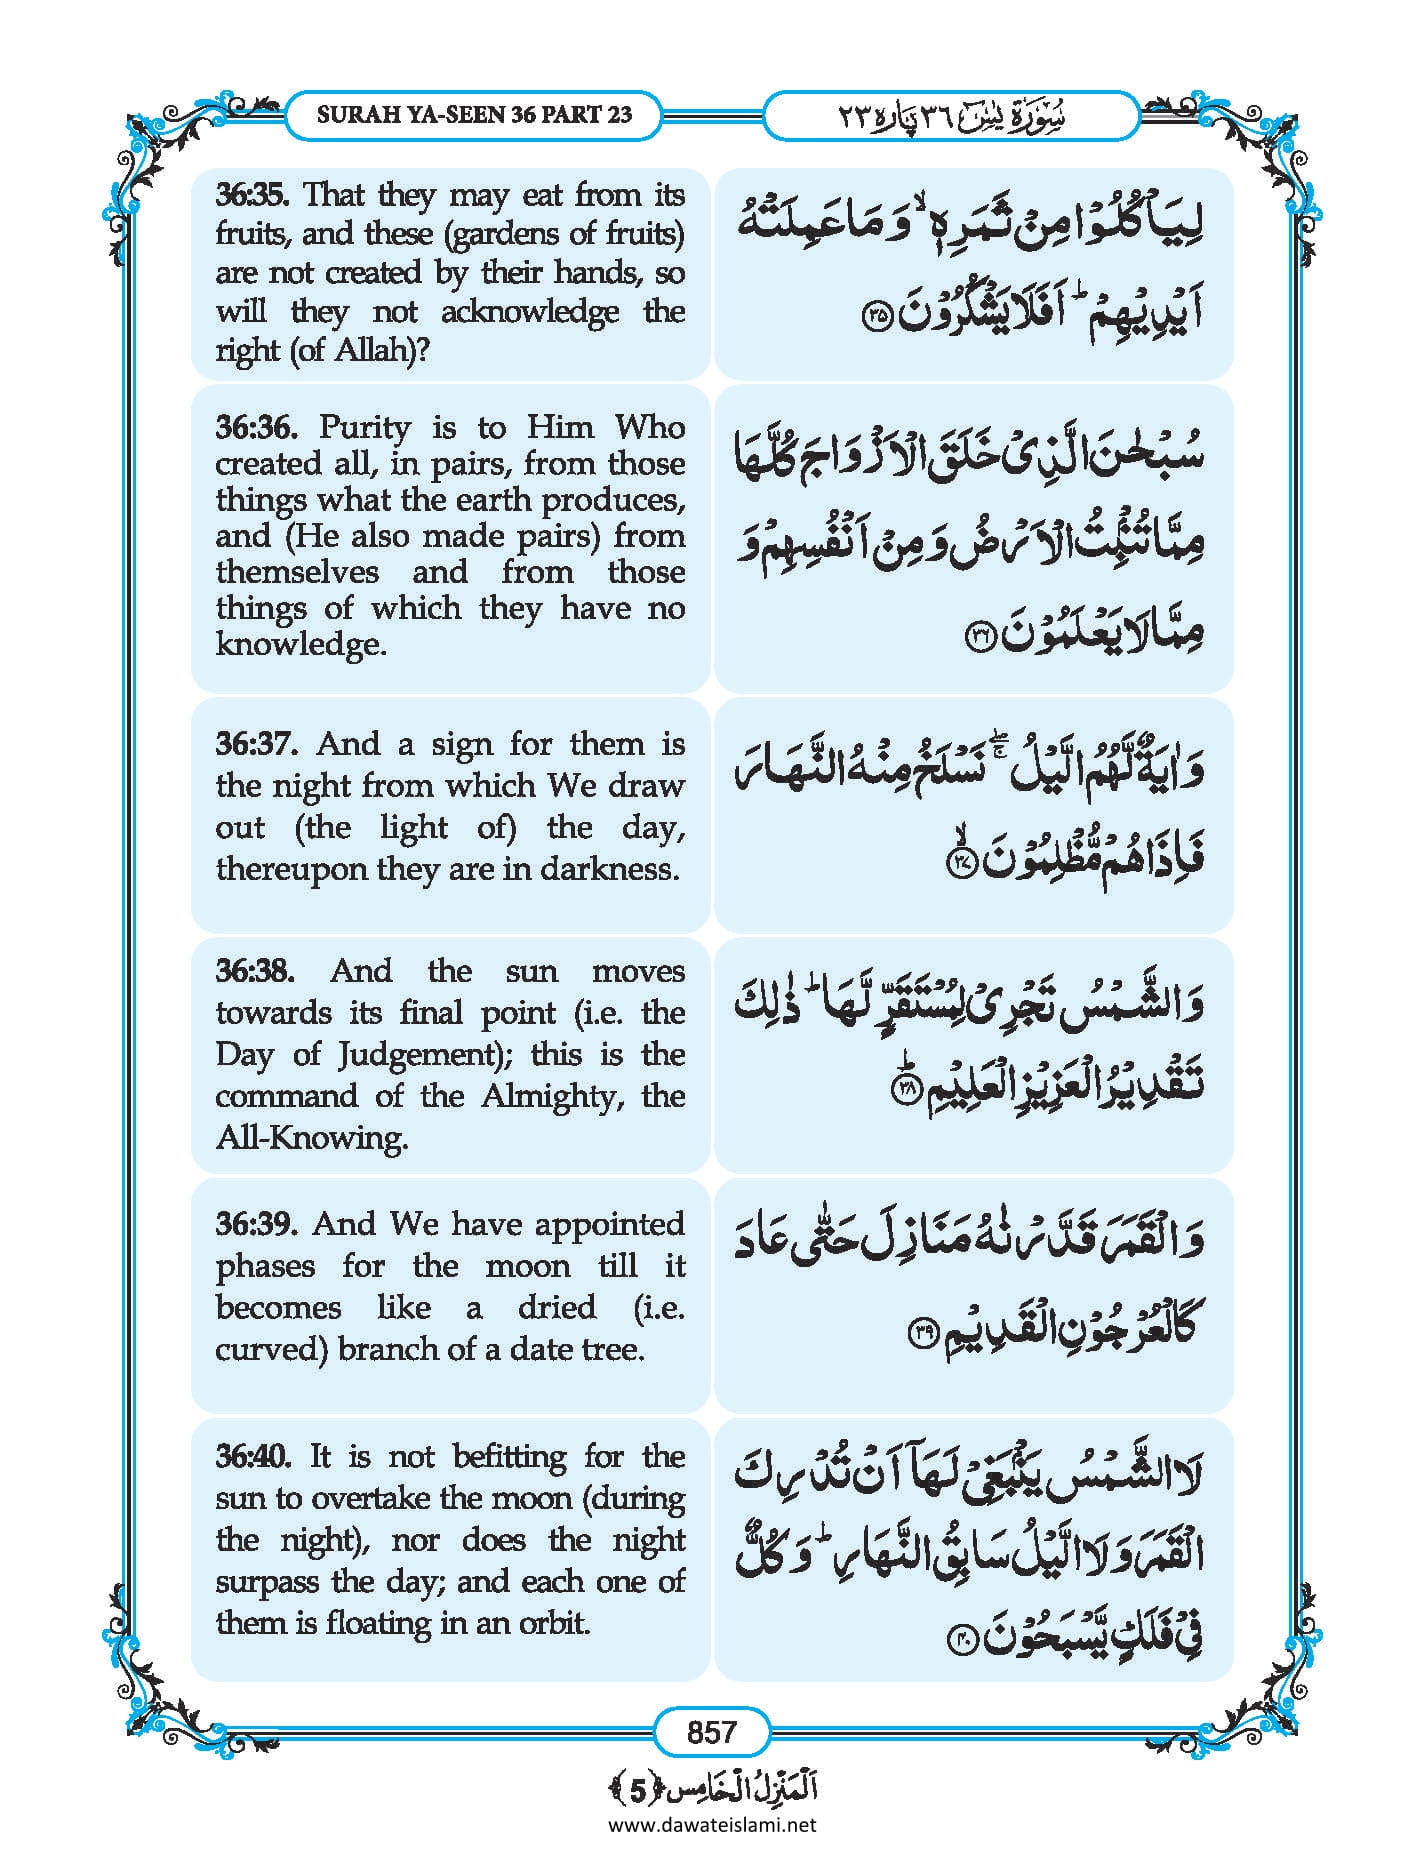 SURAH YA-SEEN 36 PART 23
سُوْرَۃُ یٰسٓ ٣٦ پارہ ٢٣
36:35. That they may eat from its
fruits, and these (gardens of fruits)
are not created by their hands, so
will they not acknowledge the
right (of Allah)?
لِیَاۡکُلُوۡا مِنۡ ثَمَرِہٖ ۙ وَ مَا عَمِلَتۡہُ
اَیۡدِیۡہِمۡ ؕ اَفَلَا یَشۡکُرُوۡنَ ﴿۳۵﴾
36:36. Purity is to Him Who
created all, in pairs, from those
things what the earth produces,
and (He also made pairs) from
themselves and from those
things of which they have no
knowledge.
سُبۡحٰنَ الَّذِیۡ خَلَقَ الۡاَزۡوَاجَ کُلَّہَا
مِمَّا تُنۡۢبِتُ الۡاَرۡضُ وَ مِنۡ اَنۡفُسِہِمۡ وَ
مِمَّا لَا یَعۡلَمُوۡنَ ﴿۳۶﴾
36:37. And a sign for them is
the night from which We draw
out (the light of) the day,
thereupon they are in darkness.
وَ اٰیَۃٌ لَّہُمُ الَّیۡلُ ۚۖ نَسۡلَخُ مِنۡہُ النَّہَارَ
فَاِذَا ہُمۡ مُّظۡلِمُوۡنَ ﴿ۙ۳۷﴾
36:38. And the sun moves
towards its final point (i.e. the
Day of Judgement); this is the
command of the Almighty, the
All-Knowing.
وَ الشَّمۡسُ تَجۡرِیۡ لِمُسۡتَقَرٍّ لَّہَا ؕ ذٰلِکَ
تَقۡدِیۡرُ الۡعَزِیۡزِ الۡعَلِیۡمِ ﴿ؕ۳۸﴾
36:39. And We have appointed
phases for the moon till it
becomes like a dried (i.e.
curved) branch of a date tree.
وَ الۡقَمَرَ قَدَّرۡنٰہُ مَنَازِلَ حَتّٰی عَادَ
کَالۡعُرۡجُوۡنِ الۡقَدِیۡمِ ﴿۳۹﴾
36:40. It is not befitting for the
sun to overtake the moon (during
the night), nor does the night
surpass the day; and each one of
them is floating in an orbit.
لَا الشَّمۡسُ یَنۡۢبَغِیۡ لَہَاۤ اَنۡ تُدۡرِکَ
الۡقَمَرَ وَ لَا الَّیۡلُ سَابِقُ النَّہَارِ ؕ وَ کُلٌّ
فِیۡ فَلَکٍ یَّسۡبَحُوۡنَ ﴿۴۰﴾
857
اَلْمَنْزِلُ الْخَامِس ﴿5﴾
www.dawateislami.net